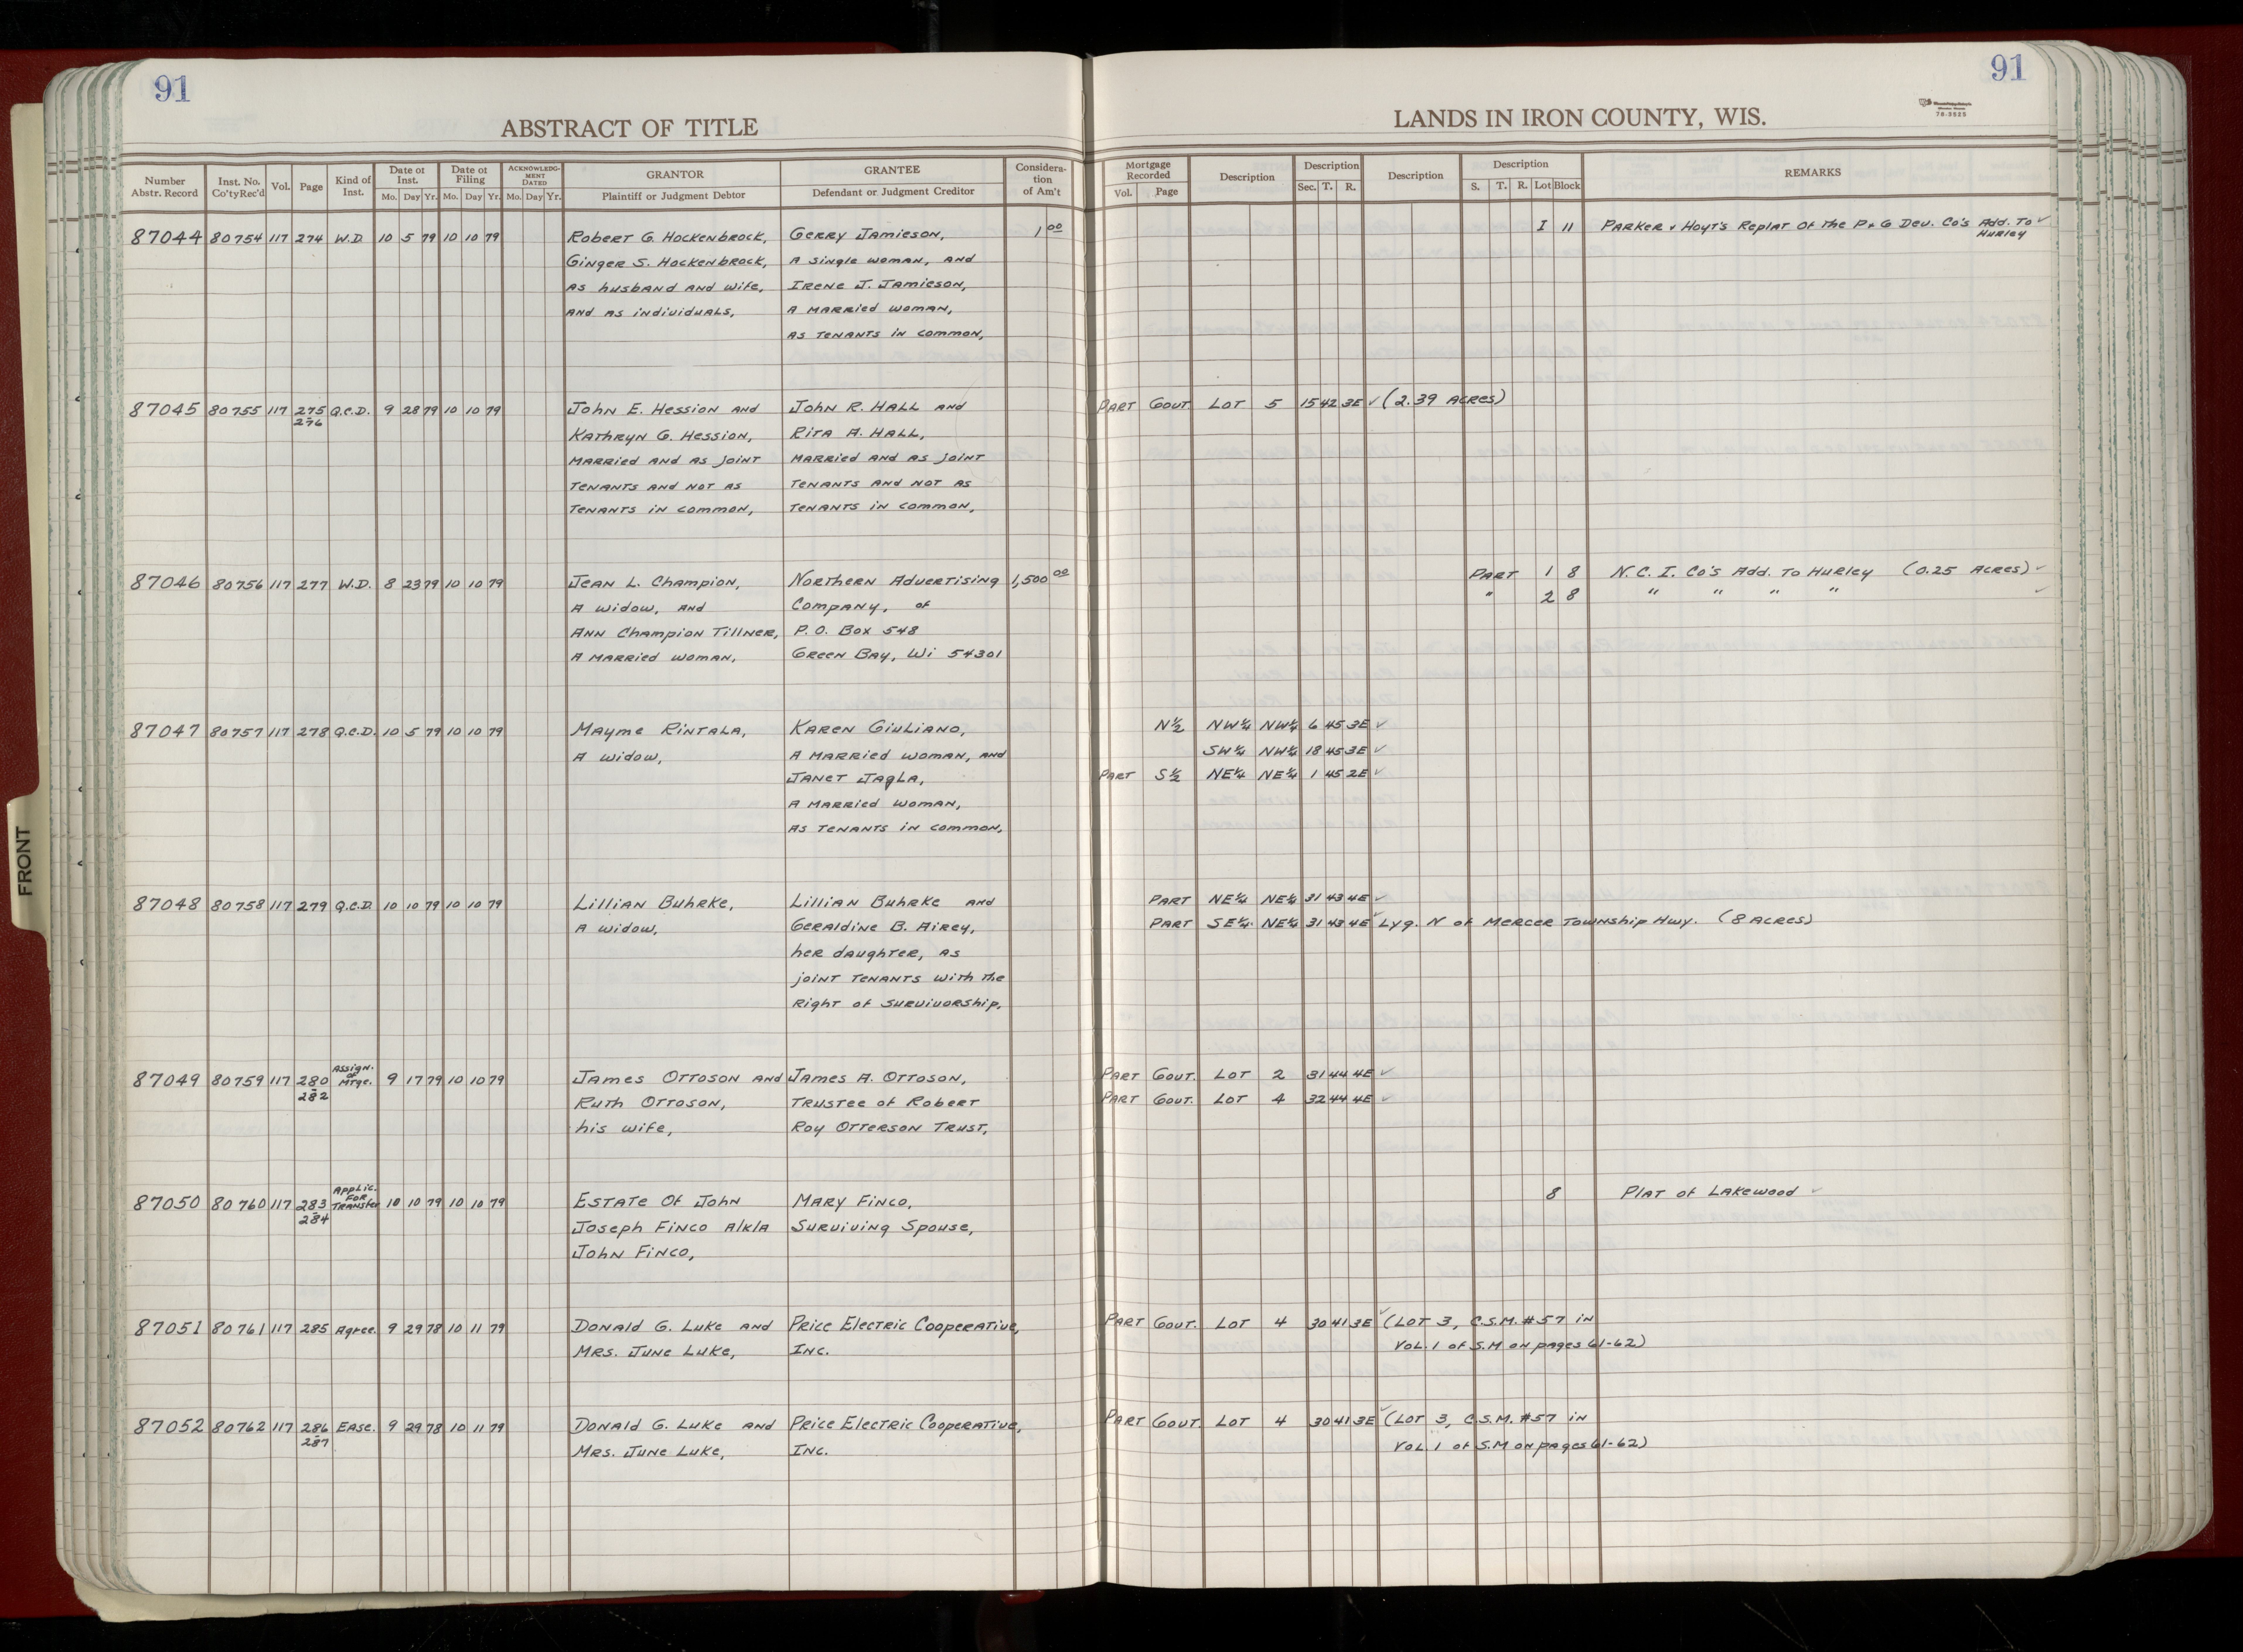 91
91
ABSTRACT OF TITLE
LANDS IN IRON COUNTY, WIS.
78-3525
Number Abstr. Record Inst. No. Co'ty Rec'd Vol. Page Kind of Inst. Date of Inst. Mo. Day Yr. Date of Filing Mo. Day Yr. ACKNOWLEDGMENT DATED Mo. Day Yr. GRANTOR Plaintiff or Judgment Debtor GRANTEE Defendant or Judgment Creditor Consideration of Am't Mortgage Recorded Vol. Page Description Description Sec. T. R. Description Description S. T. R. Lot Block REMARKS
87044 80754 117 274 W.D. 10 5 79 10 10 79 Robert G. Hockenbrock, Gerry Jamieson, 1 00 I 11 Parker & Hoyt's Replat Of the P & G Dev. Co's Add. To Hurley ✓
Ginger S. Hockenbrock, A single woman, and
as husband and wife, Irene J. Jamieson,
and as individuals, A married woman,
as tenants in common,
87045 80755 117 275-276 Q.C.D. 9 28 79 10 10 79 John E. Hession and John R. Hall and Part Gout. Lot 5 15 42 3E ✓ (2.39 Acres)
Kathryn G. Hession, Rita A. Hall,
married and as joint married and as joint
tenants and not as tenants and not as
tenants in common, tenants in common,
87046 80756 117 277 W.D. 8 23 79 10 10 79 Jean L. Champion, Northern Advertising 1,500 00 Part 1 8 N.C.I. Co's Add. To Hurley (0.25 Acres) ✓
A widow, and Company, of " 2 8 " " " " ✓
Ann Champion Tillner, P.O. Box 548
A married woman, Green Bay, Wi 54301
87047 80757 117 278 Q.C.D. 10 5 79 10 10 79 Mayme Rintala, Karen Giuliano, N½ NW¼ NW¼ 6 45 3E ✓
A widow, A married woman, and SW¼ NW¼ 18 45 3E ✓
Janet Jagla, Part S½ NE¼ NE¼ 1 45 2E ✓
A married woman,
as tenants in common,
87048 80758 117 279 Q.C.D. 10 10 79 10 10 79 Lillian Buhrke, Lillian Buhrke and Part NE¼ NE¼ 31 43 4E ✓
A widow, Geraldine B. Airey, Part SE¼ NE¼ 31 43 4E ✓ Lyg. N of Mercer Township Hwy. (8 Acres)
her daughter, as
joint tenants with the
right of survivorship,
87049 80759 117 280-282 Assign. of Mtge. 9 17 79 10 10 79 James Ottoson and James A. Ottoson, Part Gout. Lot 2 31 44 4E ✓
Ruth Ottoson, Trustee of Robert Part Gout. Lot 4 32 44 4E ✓
his wife, Roy Otterson Trust,
87050 80760 117 283-284 Applic. For Transfer 10 10 79 10 10 79 Estate Of John Mary Finco, 8 Plat of Lakewood ✓
Joseph Finco A/K/A Surviving Spouse,
John Finco,
87051 80761 117 285 Agree. 9 29 78 10 11 79 Donald G. Luke and Price Electric Cooperative, Part Gout. Lot 4 30 41 3E ✓ (Lot 3, C.S.M. #57 in
Mrs. June Luke, Inc. Vol. 1 of S.M on pages 61-62)
87052 80762 117 286-287 Ease. 9 29 78 10 11 79 Donald G. Luke and Price Electric Cooperative, Part Gout. Lot 4 30 41 3E ✓ (Lot 3, C.S.M. #57 in
Mrs. June Luke, Inc. Vol. 1 of S.M on pages 61-62)
FRONT